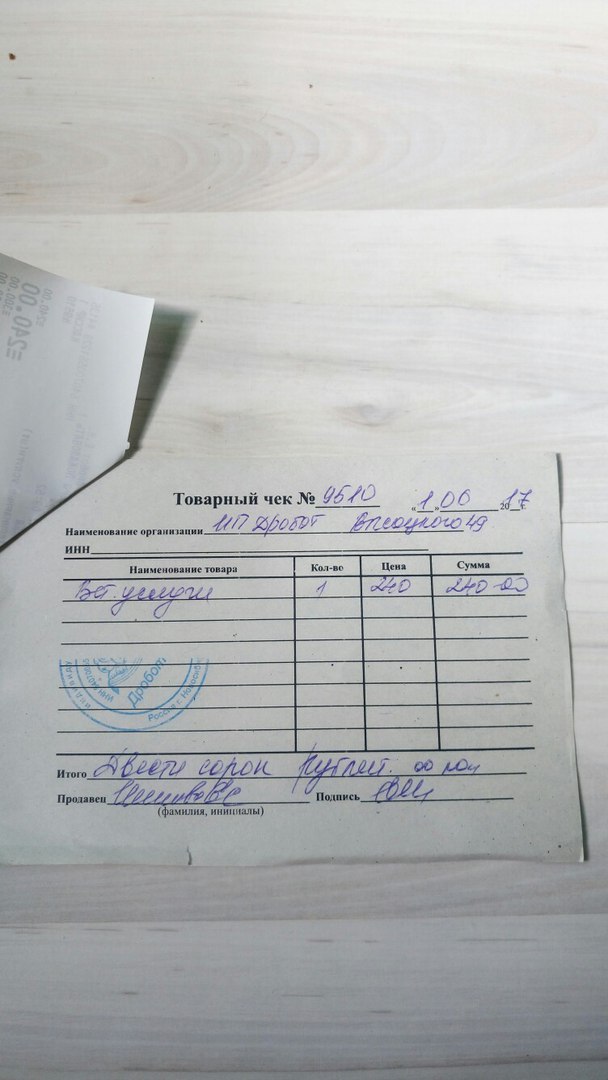 ≡240.00
Товарный чек № 9510 «1» 06 2017 г.
Наименование организации ИП Дробот Высоцкого 49
ИНН
Наименование товара Кол-во Цена Сумма
Вет. услуги 1 240 240-00
Дробот
Россия г. Новосиб
Итого Двести сорок рублей 00 коп
Продавец Подпись
(фамилия, инициалы)